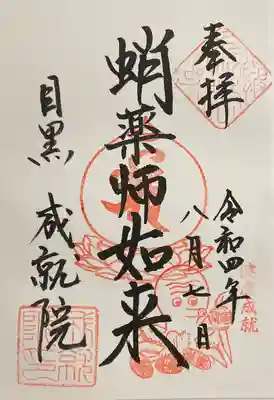 奉拝
令和四年
八月七日
蛸薬師如来
目黒 成就院
成就